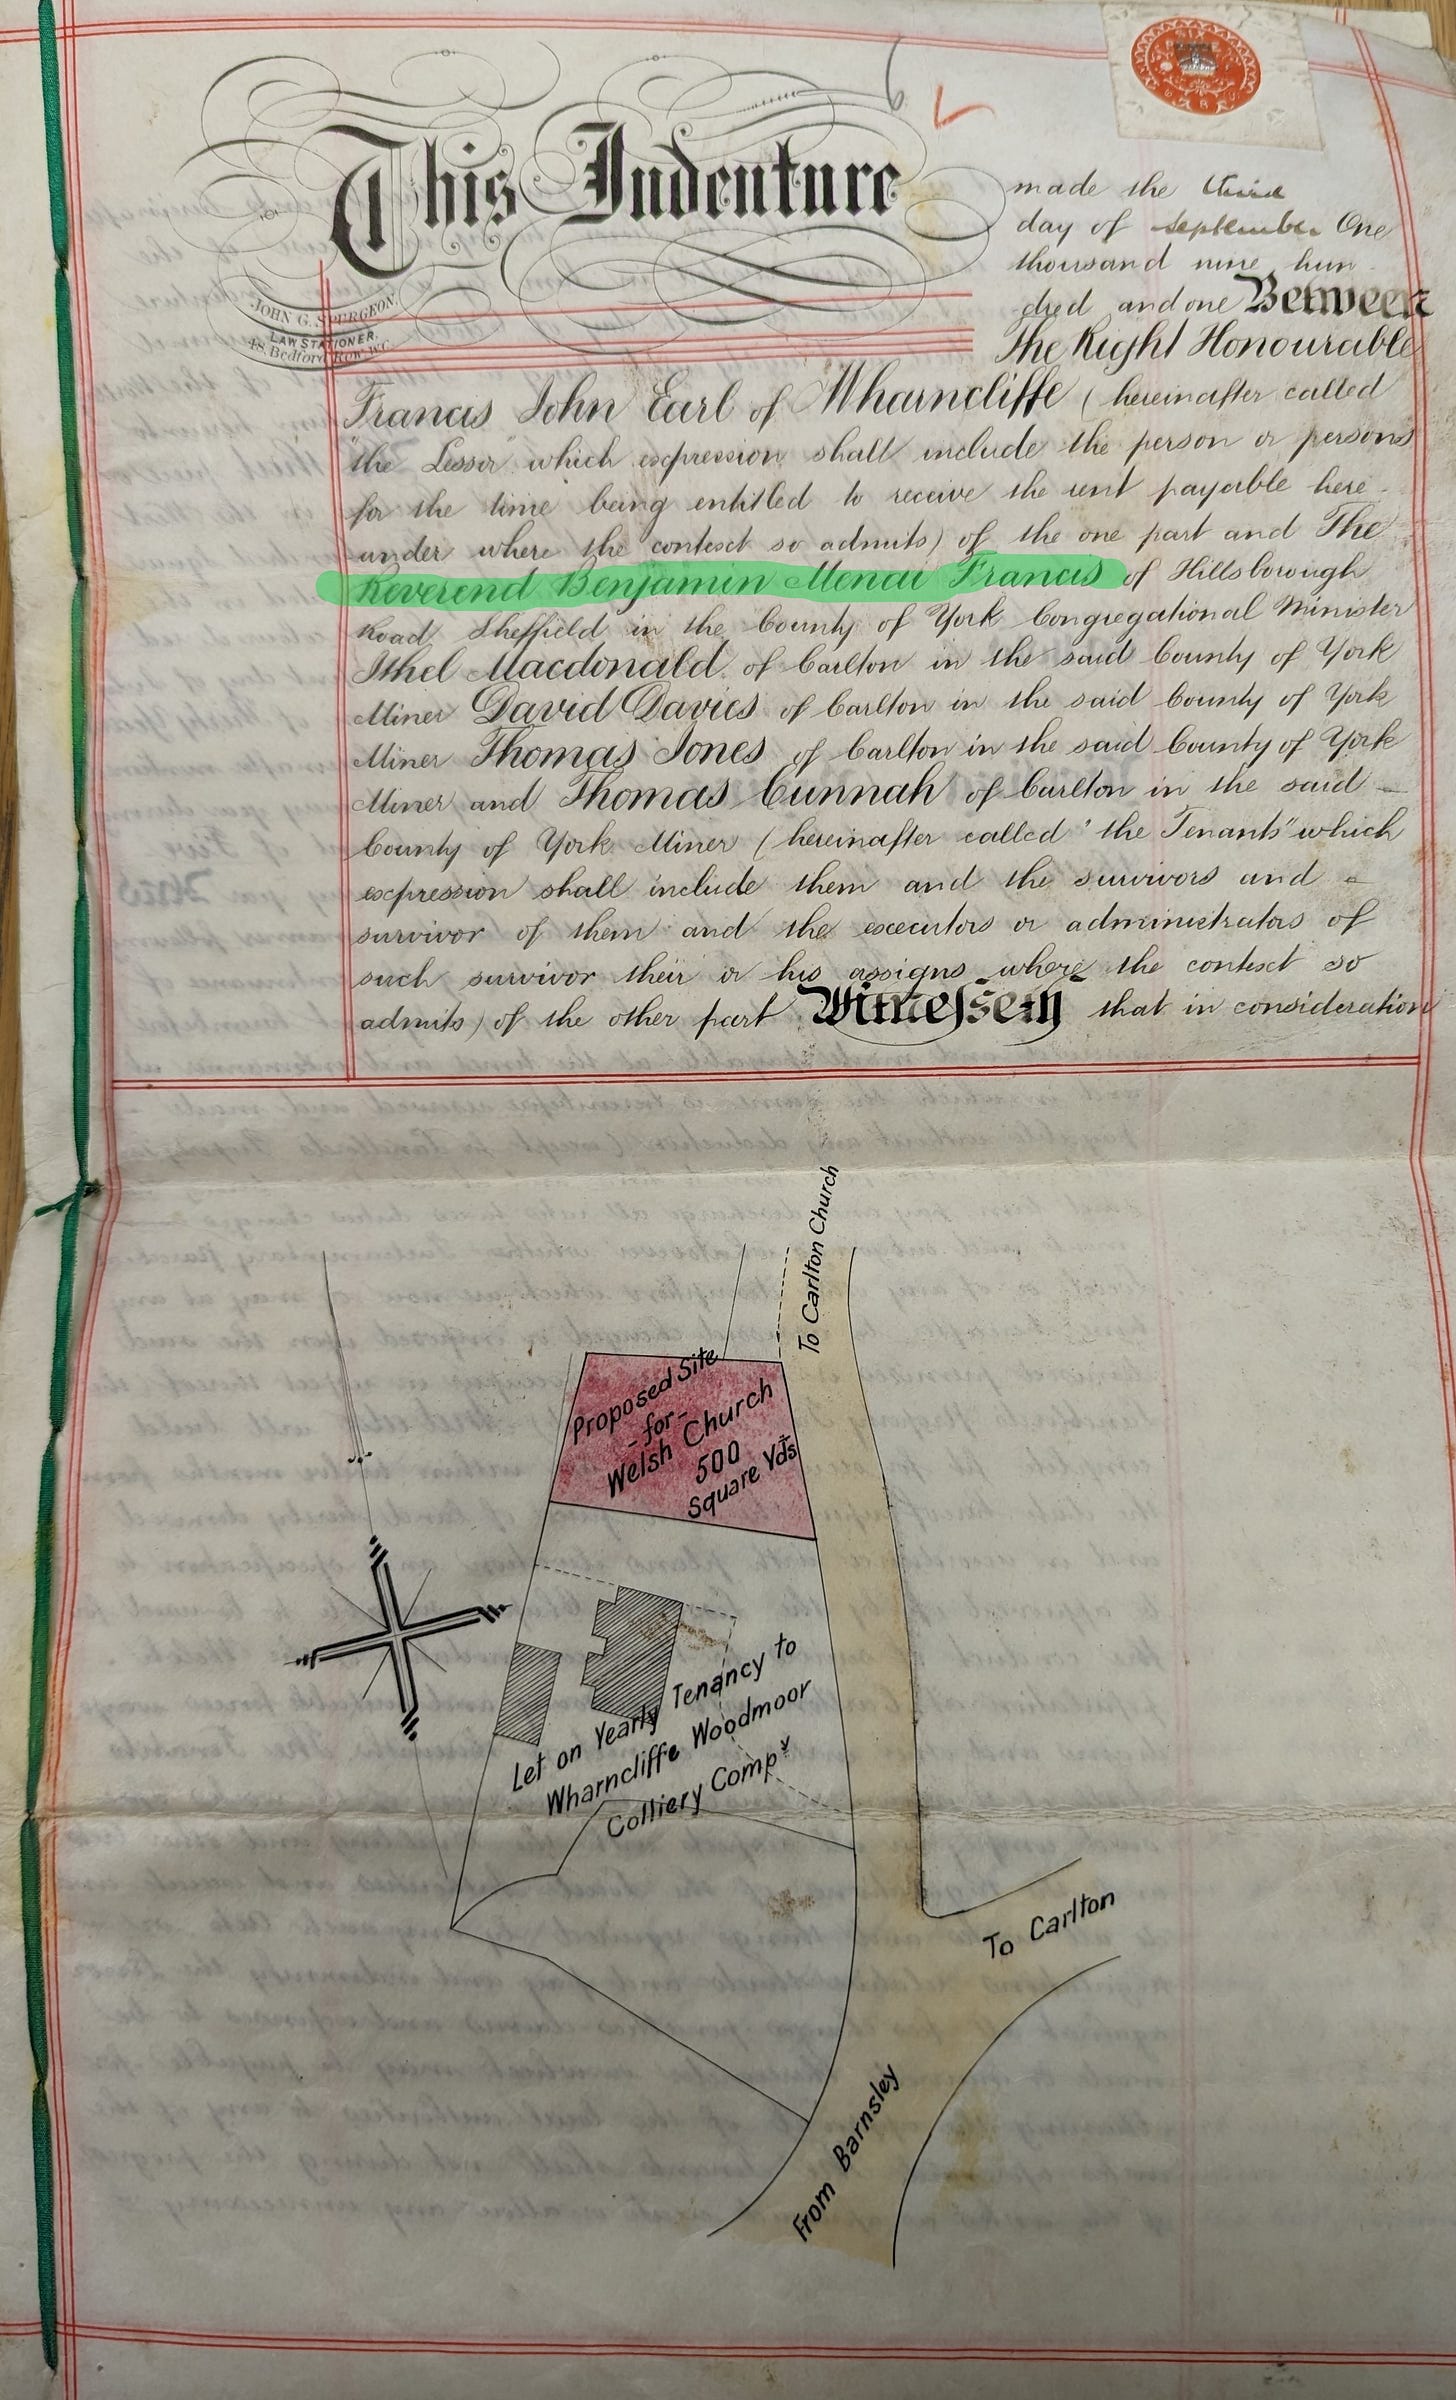 This Indenture
JOHN G. SPURGEON.
LAW STATIONER.
48. Bedford Row. W.C.
made the third
day of september One
thousand nine hun-
dred and one Between
The Right Honourable
Francis John Earl of Wharncliffe (hereinafter called
"the Lessor" which expression shall include the person or persons
for the time being entitled to receive the rent payable here-
under where the context so admits) of the one part and The
Reverend Benjamin Menai Francis of Hillsborough
Road Sheffield in the County of York Congregational Minister
Ithel Macdonald of Carlton in the said County of York
Miner David Davies of Carlton in the said County of York
Miner Thomas Jones of Carlton in the said County of York
Miner and Thomas Cunnah of Carlton in the said
County of York Miner (hereinafter called "the Tenants" which
expression shall include them and the survivors and
survivor of them and the executors or administrators of
such survivor their or his assigns where the context so
admits) of the other part Witnesseth that in consideration
To Carlton Church
Proposed Site
-for-
Welsh Church
500
Square Yds
Let on Yearly Tenancy to
Wharncliffe Woodmoor
Colliery Compy
To Carlton
From Barnsley